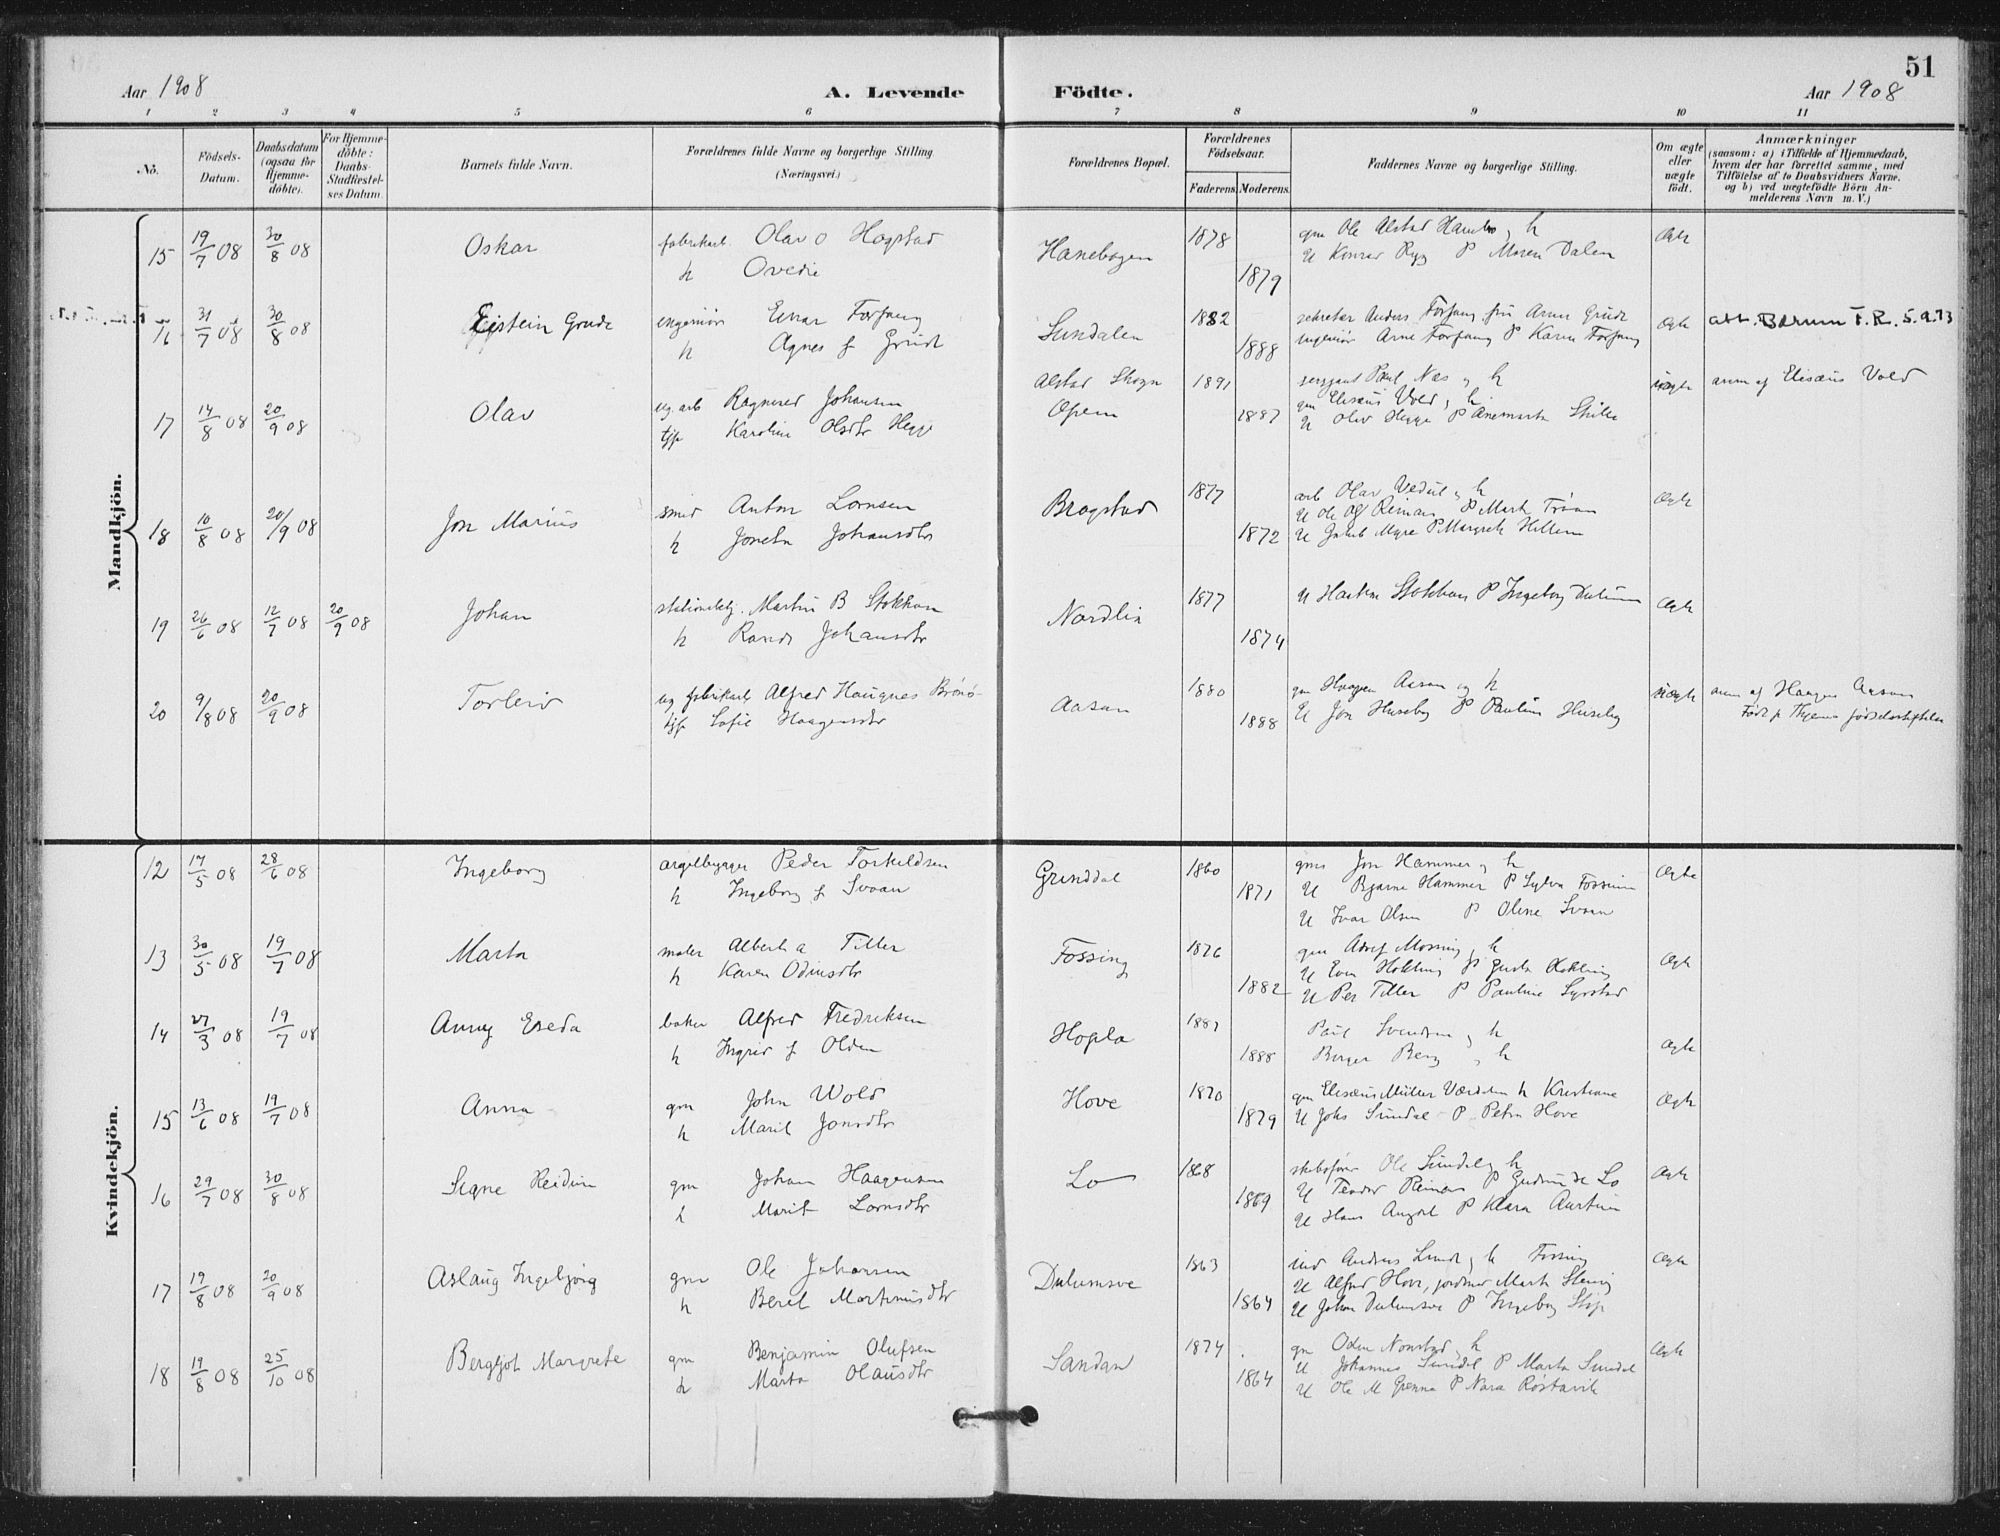 51
Aar 1908 A. Levende Födte. Aar 1908
1 2 3 4 5 6 7 8 9 10 11
No.
Födsels-Datum.
Daabsdatum (ogsaa for Hjemme-döbte).
For Hjemme-döbte: Daabs-Stadfæstel-ses Datum.
Barnets fulde Navn.
Forældrenes fulde Navne og borgerlige Stilling (Næringsvei.)
Forældrenes Bopæl.
Forældrenes Födselsaar.
Faderens. Moderens.
Faddernes Navne og borgerlige Stilling.
Om ægte eller uægte födt.
Anmærkninger
(saasom: a) i Tilfælde af Hjemmedaab,
hvem der har forrettet samme, med
Tilföielse af to Daabsvidners Navne.
og b) ved uægtefödte Börn An-
melderens Navn m. V.)
Mandkjön.
15 19/7 08 30/8 08 Oskar fabrikarb. Olav O Hogstad Hanebogen 1878 gm Ole Alstad og h Ægte
h Ovedie 1879 U Konrad Rygg P Maren Dalen
16 31/7 08 30/8 08 Eystein Grude ingeniør Einar Forfang Sundalen 1882 sekretær Anders Forfang fru Anna Grude Ægte att. Bærum F.R. 5.9.73
h Agnes f Grude 1888 ingeniør Arne Forfang P Karen Forfang
17 14/8 08 20/9 08 Olav ug. arb Ragnvald Johansen Alstad Skogn 1891 sergeant Paul Næs og h uægte anm af Elisæus Vold
tjp Karoline Olsdtr Hegge Opem 1887 gm Elisæus Vold og h
U Olav Hegge P Anemarta
18 10/8 08 20/9 08 Jon Marius smed Anton Lornsen Bragstad 1877 arb Olav Vedul og h Ægte
h Joneta Johansdtr 1872 U Ole P Marta Trøan
U Jakob Myre P Margrete Hellem
19 26/6 08 12/7 08 20/9 08 Johan Martin B Stokkan Nordlia 1877 U Stokkan P Ingeborg Ægte
h Randi Johansdtr 1874
20 9/8 08 20/9 08 Torleiv ug fabrikarb Alfred Aasan 1880 gm Haagen Aasan og h uægte anm af Haagen Aasan
tjp Sofie Haagensdtr 1888 U Jon Huseby P Pauline Huseby Født p
Kvindekjön.
12 17/5 08 28/6 08 Ingeborg orgelbygger Peder Torkildsen Grinddal 1860 gm Jon Hammer og h Ægte
h Ingeborg f Svaan 1871 U Bjarne Hammer P Sylva Fossum
U Ivar Olsen P Oline Svaan
13 30/5 08 19/7 08 Marta maler Albert A Tiller Fossing 1876 gm h Ægte
h Karen Odinsdtr 1882 U Even Hokling P Gusta Hokling
U Per Tiller P Pauline
14 27/3 08 19/7 08 Anny Eseda baker Alfred Fredriksen Hopla 1881 Paul Svendsen og h
h Ingrid f Olden 1888 Birger Berg og h Ægte
15 13/6 08 19/7 08 Anna gm John Wold Hove 1870 gm Elisæus Müller Værdalen h Kristiane Ægte
h Marit Jonsdtr 1879 U Johs Sundal P Petra Hove
16 29/7 08 30/8 08 Signe Reidun gm Johan Haagensen Lo 1868 skibsfører Ole Sundal og h Ægte
h Marit Lornsdtr 1869 U Teodor P Gudrun Lo
U Hans P Klara
17 19/8 08 20/9 08 Aslaug Ingebjørg gm Ole Johansen Dulumsve 1863 ind Andreas Lunde og h Fossing Ægte
h Beret Martinusdtr 1864 U Alfred Hove, jordmor Marta
U Johan Dulumsve P Ingeborg
18 19/8 08 25/10 08 Bergljot Margrete gm Benjamin Olufsen Sandan 1874 gm Odin og h Ægte
h Marta Olausdtr 1864 U Johannes Sundal P Marta Sundal
U Ole M Grenne P Nora Røstavik